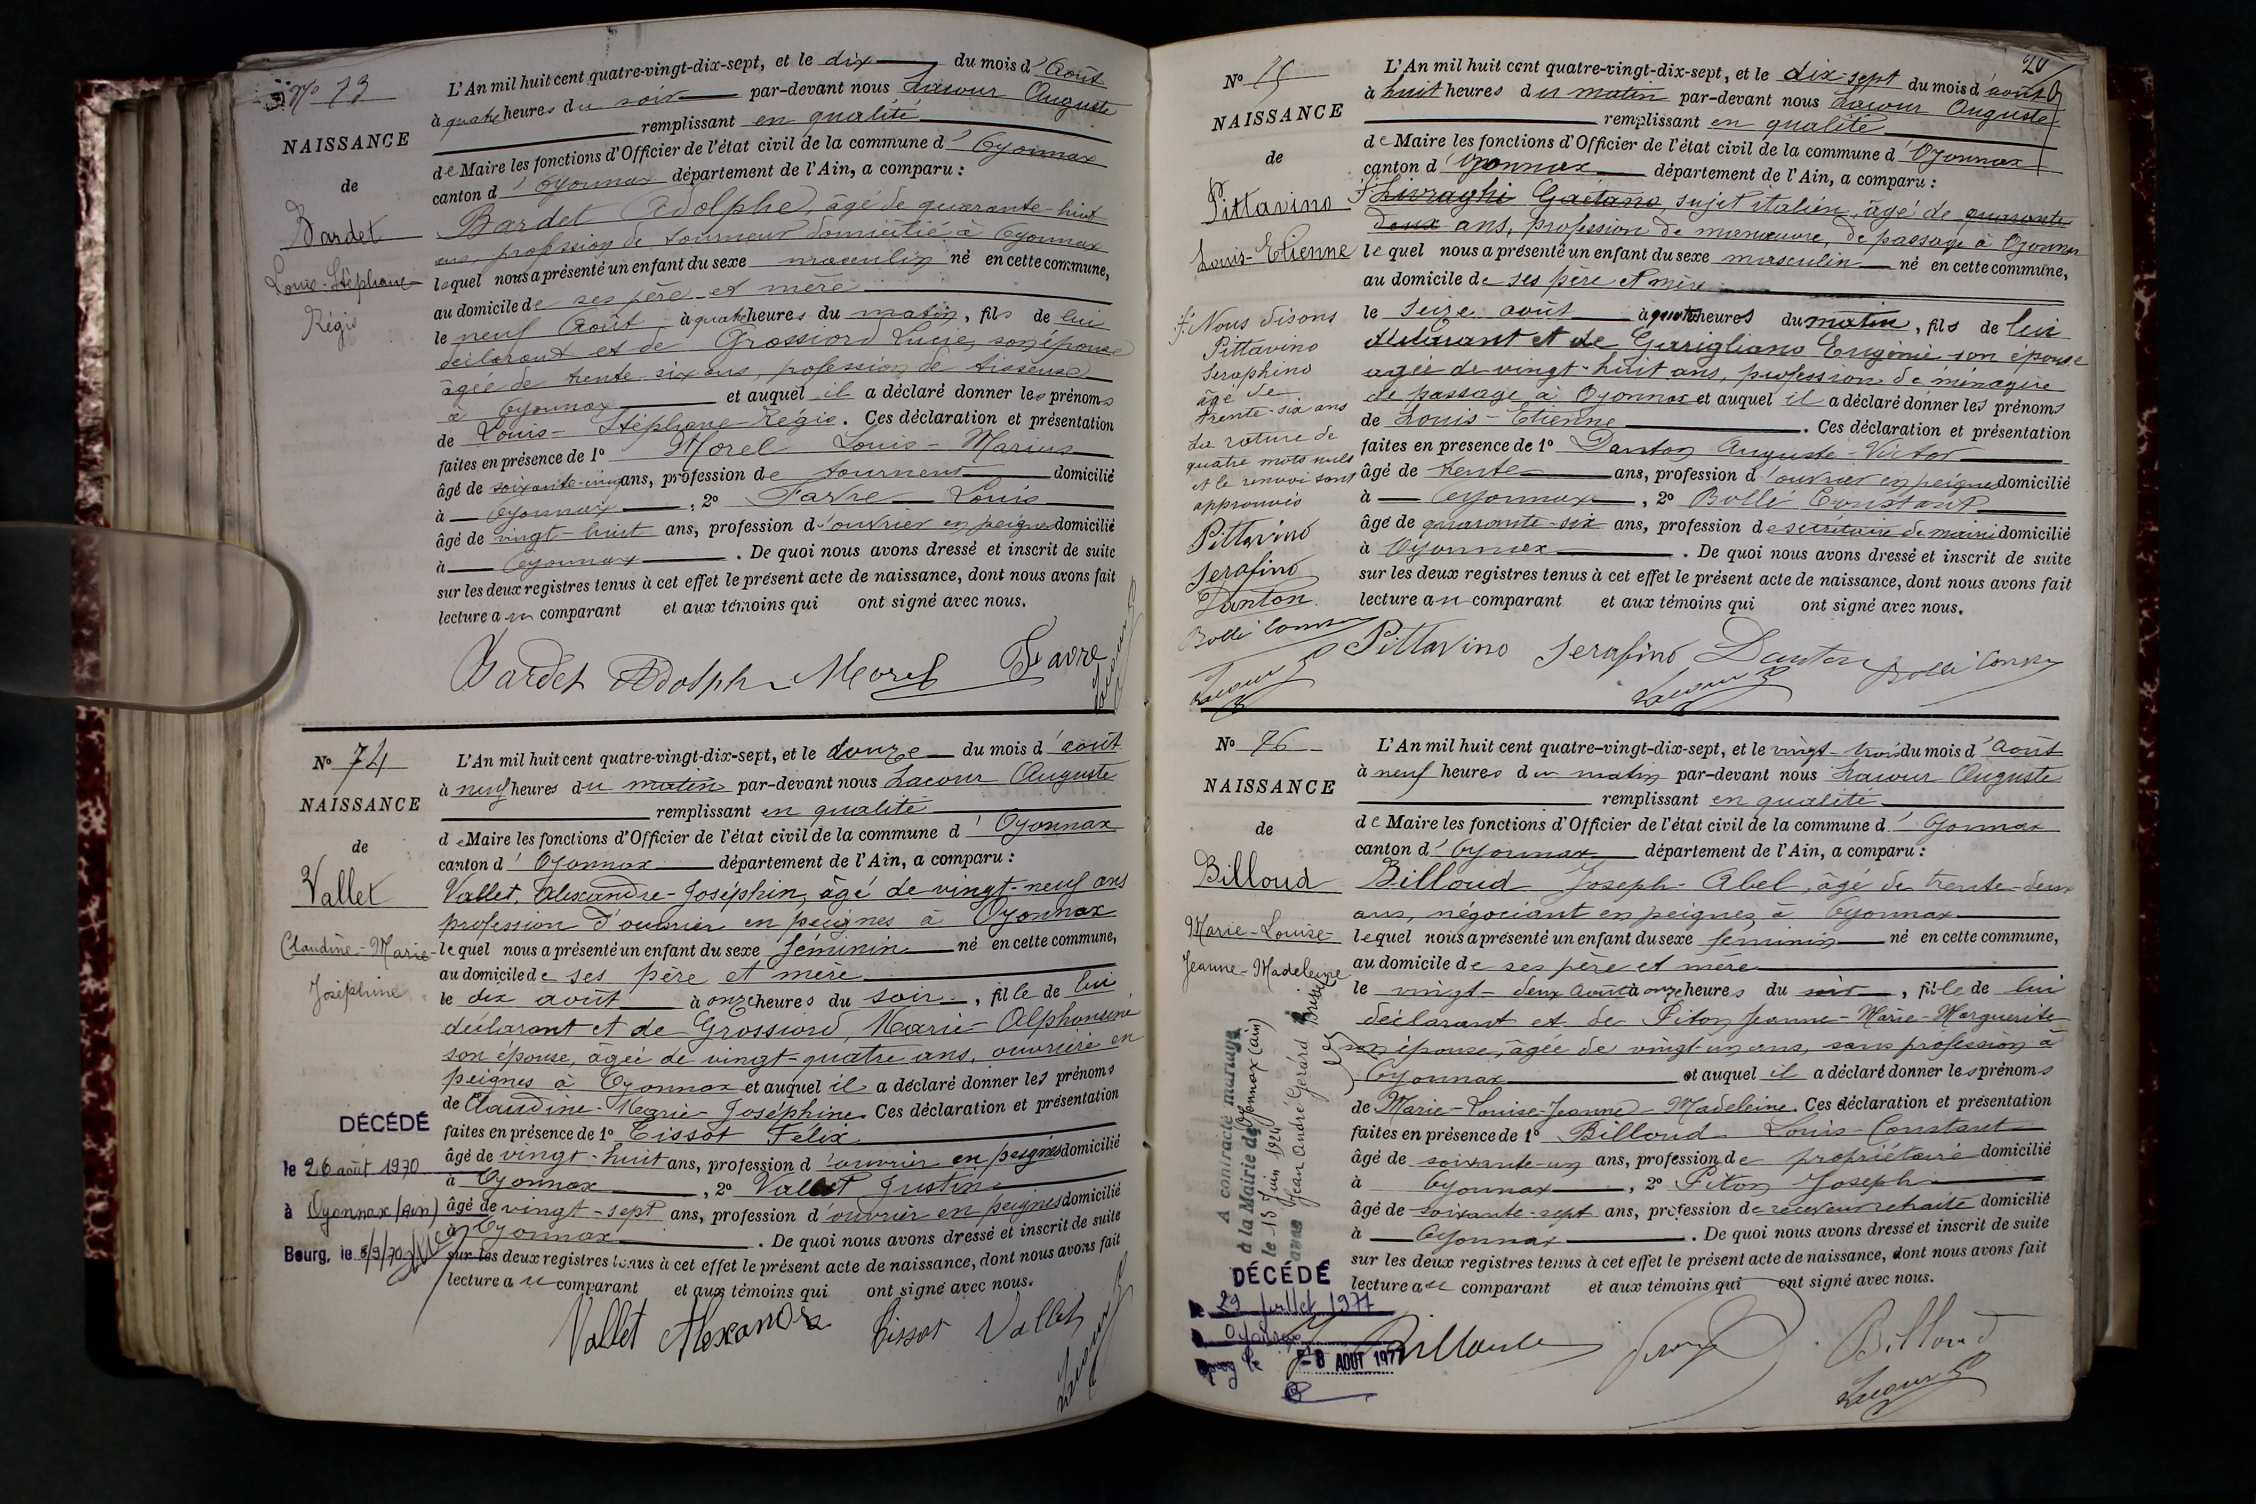 No 73
NAISSANCE
de
Bardet
Louis-Stéphane
Régis
L'An mil huit cent quatre-vingt-dix-sept, et le dix du mois d'Août
à quatre heures du soir par-devant nous Lacour Auguste
remplissant en qualité
de Maire les fonctions d'Officier de l'état civil de la commune d'Oyonnax
canton d'Oyonnax département de l'Ain, a comparu :
Bardet Adolphe, âgé de quarante-huit
ans, profession de tourneur domicilié à Oyonnax
lequel nous a présenté un enfant du sexe masculin né en cette commune,
au domicile de ses père et mère
le neuf Août à quatre heures du matin, fils de lui
déclarant et de Grossiord Lucie, son épouse
âgée de trente-six ans, profession de tisseuse
à Oyonnax et auquel il a déclaré donner les prénoms
de Louis-Stéphane-Régis. Ces déclaration et présentation
faites en présence de 1º Morel Louis-Marius
âgé de soixante-cinq ans, profession de tourneur domicilié
à Oyonnax, 2º Favre Louis
âgé de vingt-huit ans, profession d'ouvrier en peignes domicilié
à Oyonnax. De quoi nous avons dressé et inscrit de suite
sur les deux registres tenus à cet effet le présent acte de naissance, dont nous avons fait
lecture au comparant et aux témoins qui ont signé avec nous.
Bardet Adolph Morel Favre
Lacour
No 74
NAISSANCE
de
Vallet
Claudine-Marie-
Joséphine
DÉCÉDÉ
le 26 août 1970
à Oyonnax (Ain)
Bourg, le 8/9/70
L'An mil huit cent quatre-vingt-dix-sept, et le douze du mois d'août
à neuf heures du matin par-devant nous Lacour Auguste
remplissant en qualité
de Maire les fonctions d'Officier de l'état civil de la commune d'Oyonnax
canton d'Oyonnax département de l'Ain, a comparu :
Vallet, Alexandre-Joséphin, âgé de vingt-neuf ans
profession d'ouvrier en peignes à Oyonnax
lequel nous a présenté un enfant du sexe féminin né en cette commune,
au domicile de ses père et mère
le dix août à onze heures du soir, fille de lui
déclarant et de Grossiord, Marie-Alphonsine
son épouse, âgée de vingt-quatre ans, ouvrière en
peignes à Oyonnax et auquel il a déclaré donner les prénoms
de Claudine-Marie-Joséphine. Ces déclaration et présentation
faites en présence de 1º Tissot Félix
âgé de vingt-huit ans, profession d'ouvrier en peignes domicilié
à Oyonnax, 2º Vallet Justin
âgé de vingt-sept ans, profession d'ouvrier en peignes domicilié
à Oyonnax. De quoi nous avons dressé et inscrit de suite
sur les deux registres tenus à cet effet le présent acte de naissance, dont nous avons fait
lecture au comparant et aux témoins qui ont signé avec nous.
Vallet Alexandre Tissot Vallet
Lacour
20
No 75
NAISSANCE
de
Pittavino
Louis-Etienne
Nous disons
Pittavino
Seraphino
âgé de
trente-six ans
La rature de
quatre mots nuls
et le renvoi sont
approuvés
Pittavino
Serafino
Danton
Bollé Const
Lacour
L'An mil huit cent quatre-vingt-dix-sept, et le dix-sept du mois d'août
à huit heures du matin par-devant nous Lacour Auguste
remplissant en qualité
de Maire les fonctions d'Officier de l'état civil de la commune d'Oyonnax
canton d'Oyonnax département de l'Ain, a comparu :
Livraghi Gaëtano sujet italien, âgé de quarante
deux ans, profession de manœuvre, de passage à Oyonnax
lequel nous a présenté un enfant du sexe masculin né en cette commune,
au domicile de ses père et mère
le seize août à quatre heures du matin, fils de lui
déclarant et de Garigliano Eugénie son épouse
âgée de vingt-huit ans, profession de ménagère
de passage à Oyonnax et auquel il a déclaré donner les prénoms
de Louis-Etienne. Ces déclaration et présentation
faites en présence de 1º Danton Auguste-Victor
âgé de trente ans, profession d'ouvrier en peignes domicilié
à Oyonnax, 2º Bollé Constant
âgé de quarante-six ans, profession de secrétaire de mairie domicilié
à Oyonnax. De quoi nous avons dressé et inscrit de suite
sur les deux registres tenus à cet effet le présent acte de naissance, dont nous avons fait
lecture au comparant et aux témoins qui ont signé avec nous.
Pittavino Serafino Danton Bollé Const
Lacour
No 76
NAISSANCE
de
Billoud
Marie-Louise-
Jeanne-Madeleine
A contracté mariage
à la Mairie de Oyonnax (Ain)
le 15 Juin 1924
avec Jean André Gérard
DÉCÉDÉ
le 29 juillet 1977
à Oyonnax
Bourg le - 8 AOUT 1977
L'An mil huit cent quatre-vingt-dix-sept, et le vingt-trois du mois d'Août
à neuf heures du matin par-devant nous Lacour Auguste
remplissant en qualité
de Maire les fonctions d'Officier de l'état civil de la commune d'Oyonnax
canton d'Oyonnax département de l'Ain, a comparu :
Billoud Joseph-Abel, âgé de trente-deux
ans, négociant en peignes à Oyonnax
lequel nous a présenté un enfant du sexe féminin né en cette commune,
au domicile de ses père et mère
le vingt-deux Août à onze heures du soir, fille de lui
déclarant et de Piton Jeanne-Marie-Marguerite
son épouse, âgée de vingt-un ans, sans profession à
Oyonnax et auquel il a déclaré donner les prénoms
de Marie-Louise-Jeanne-Madeleine. Ces déclaration et présentation
faites en présence de 1º Billoud Louis-Constant
âgé de soixante-un ans, profession de propriétaire domicilié
à Oyonnax, 2º Piton Joseph
âgé de soixante-sept ans, profession de receveur retraité domicilié
à Oyonnax. De quoi nous avons dressé et inscrit de suite
sur les deux registres tenus à cet effet le présent acte de naissance, dont nous avons fait
lecture au comparant et aux témoins qui ont signé avec nous.
Billoud
Billoud
Lacour